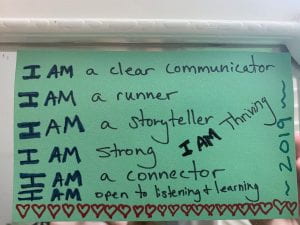 I AM a clear communicator
I AM a runner
I AM a storyteller
I AM Thriving
I AM strong
I AM a connector
I AM open to listening & learning
~ 2019 ~